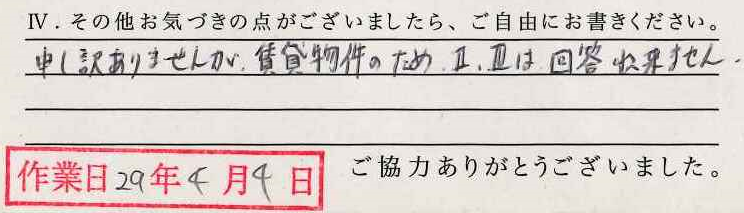 Ⅳ．その他お気づきの点がございましたら、ご自由にお書きください。
申し訳ありませんが、賃貸物件のため、Ⅱ、Ⅲは回答出来ません。
ご協力ありがとうございました。
作業日29年4月4日